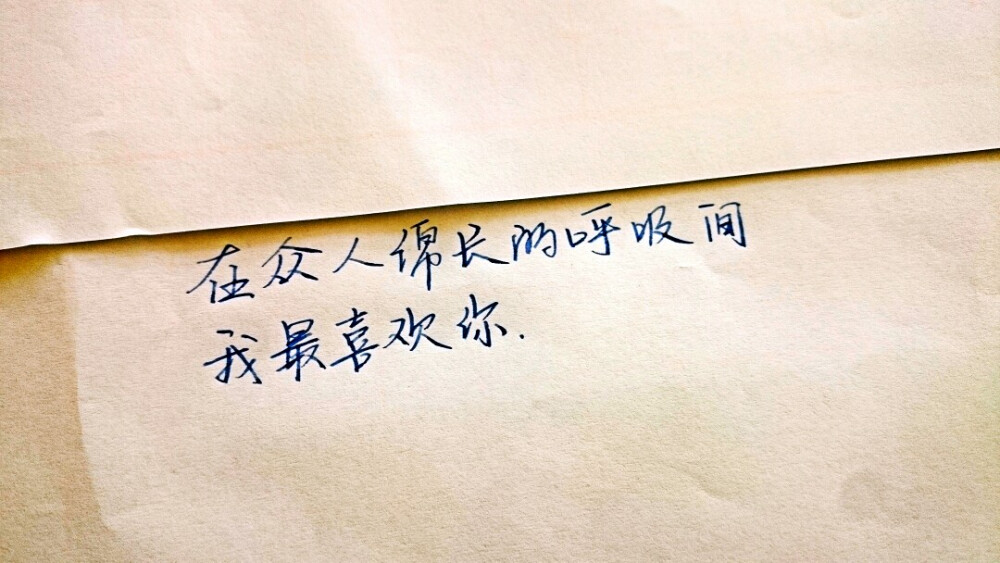 在众人绵长的呼吸间
我最喜欢你.